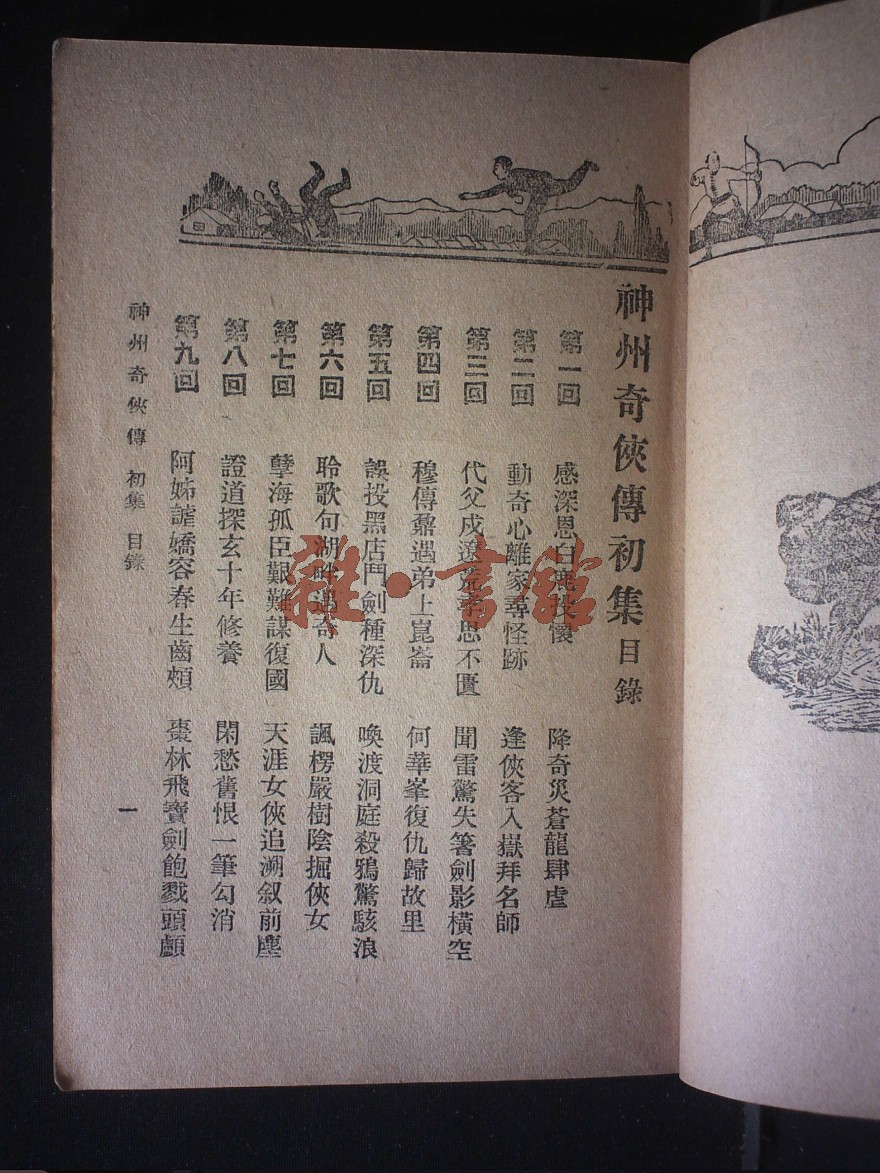 神州奇俠傳初集目錄
第一回 感深恩白 投懷 降奇災蒼龍肆虐
第二回 動奇心離家尋怪跡 逢俠客入嶽拜名師
第三回 代父戍遼 孝思不匱 聞雷驚失箸劍影橫空
第四回 穆傳鼐遇弟上崑崙 何華峯復仇歸故里
第五回 誤投黑店鬥劍種深仇 喚渡洞庭殺鴉驚駭浪
第六回 聆歌句湖畔遇奇人 諷楞嚴樹陰掘俠女
第七回 孽海孤臣艱難謀復國 天涯女俠追溯叙前塵
第八回 證道探玄十年修養 閑愁舊恨一筆勾消
第九回 阿姊謔嬌容春生齒頰 棗林飛寶劍飽戮頭顱
神州奇俠傳 初集 目錄
一
雜·書館